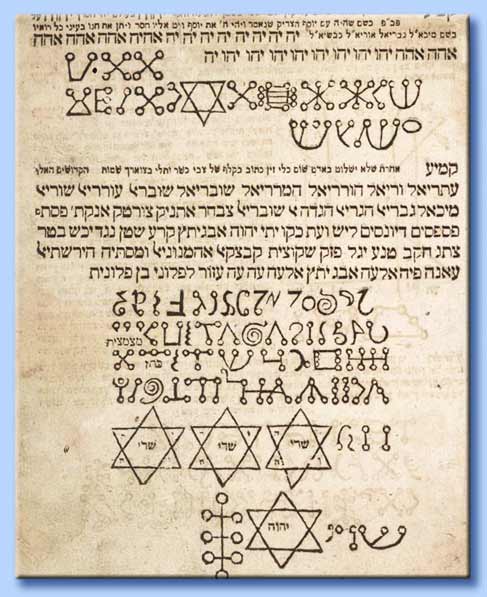 פב"פ בשם שהיה עם יוסף הצדיק שנאמר ויהי ה' את יוסף ויט אליו חסד ויתן את חנו בעיני כל רואיו
בשם מיכא"ל גבריאל אוריא"ל כבשיא"ל יה יה יה יה יה יה יה יה אהיה אהה אהה אהה אהה
אהה אהה יהו יהו יהו יהו יהו יהו יהו יהו יה
קמיע אחרת שלא ישלוט באדם שום כלי זין כתוב בקלף של צבי כשר ותלי בצוארך שמות הקדושים האלו
עתריאל וריאל הורריאל המרריאל שובריאל שובריא עורריא שוריא
מיכאל גבריא הגריא הגדה א שובריא צבחר אתניק צורטק אנקת' פסתם
פספסים דיונסים ליש ועת כקו יתי יהוה אבגיתץ קרע שטן נגדיכש בטר
צתג חקב טנע יגל פזק שקוצית קבצקא אהמנוניא ומסתיה הירשתיא
עאנה פיה אלעה אבג יתץ אלעה עה עה עזור לפלוני בן פלונית
מצמצית
כהן
שדי שדי שדי
יהוה